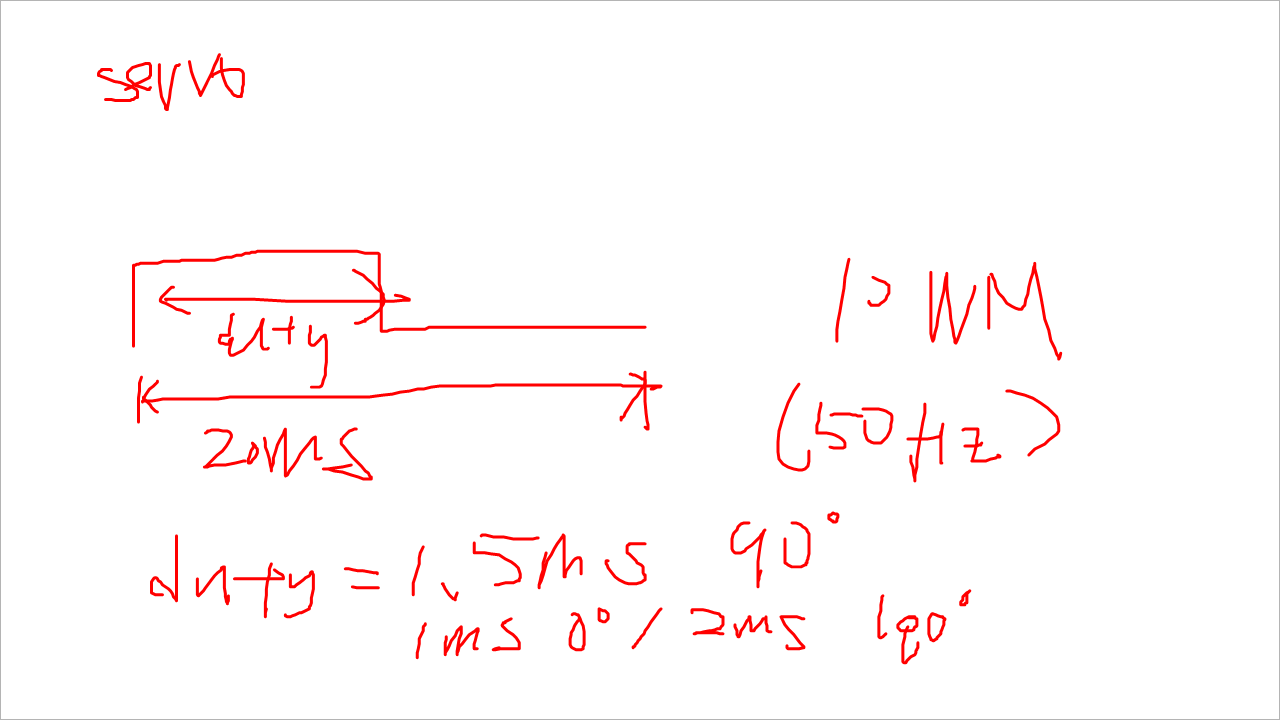 servo
duty
20ms
PWM
(50Hz)
duty = 1.5ms 90°
1ms 0° / 2ms 180°